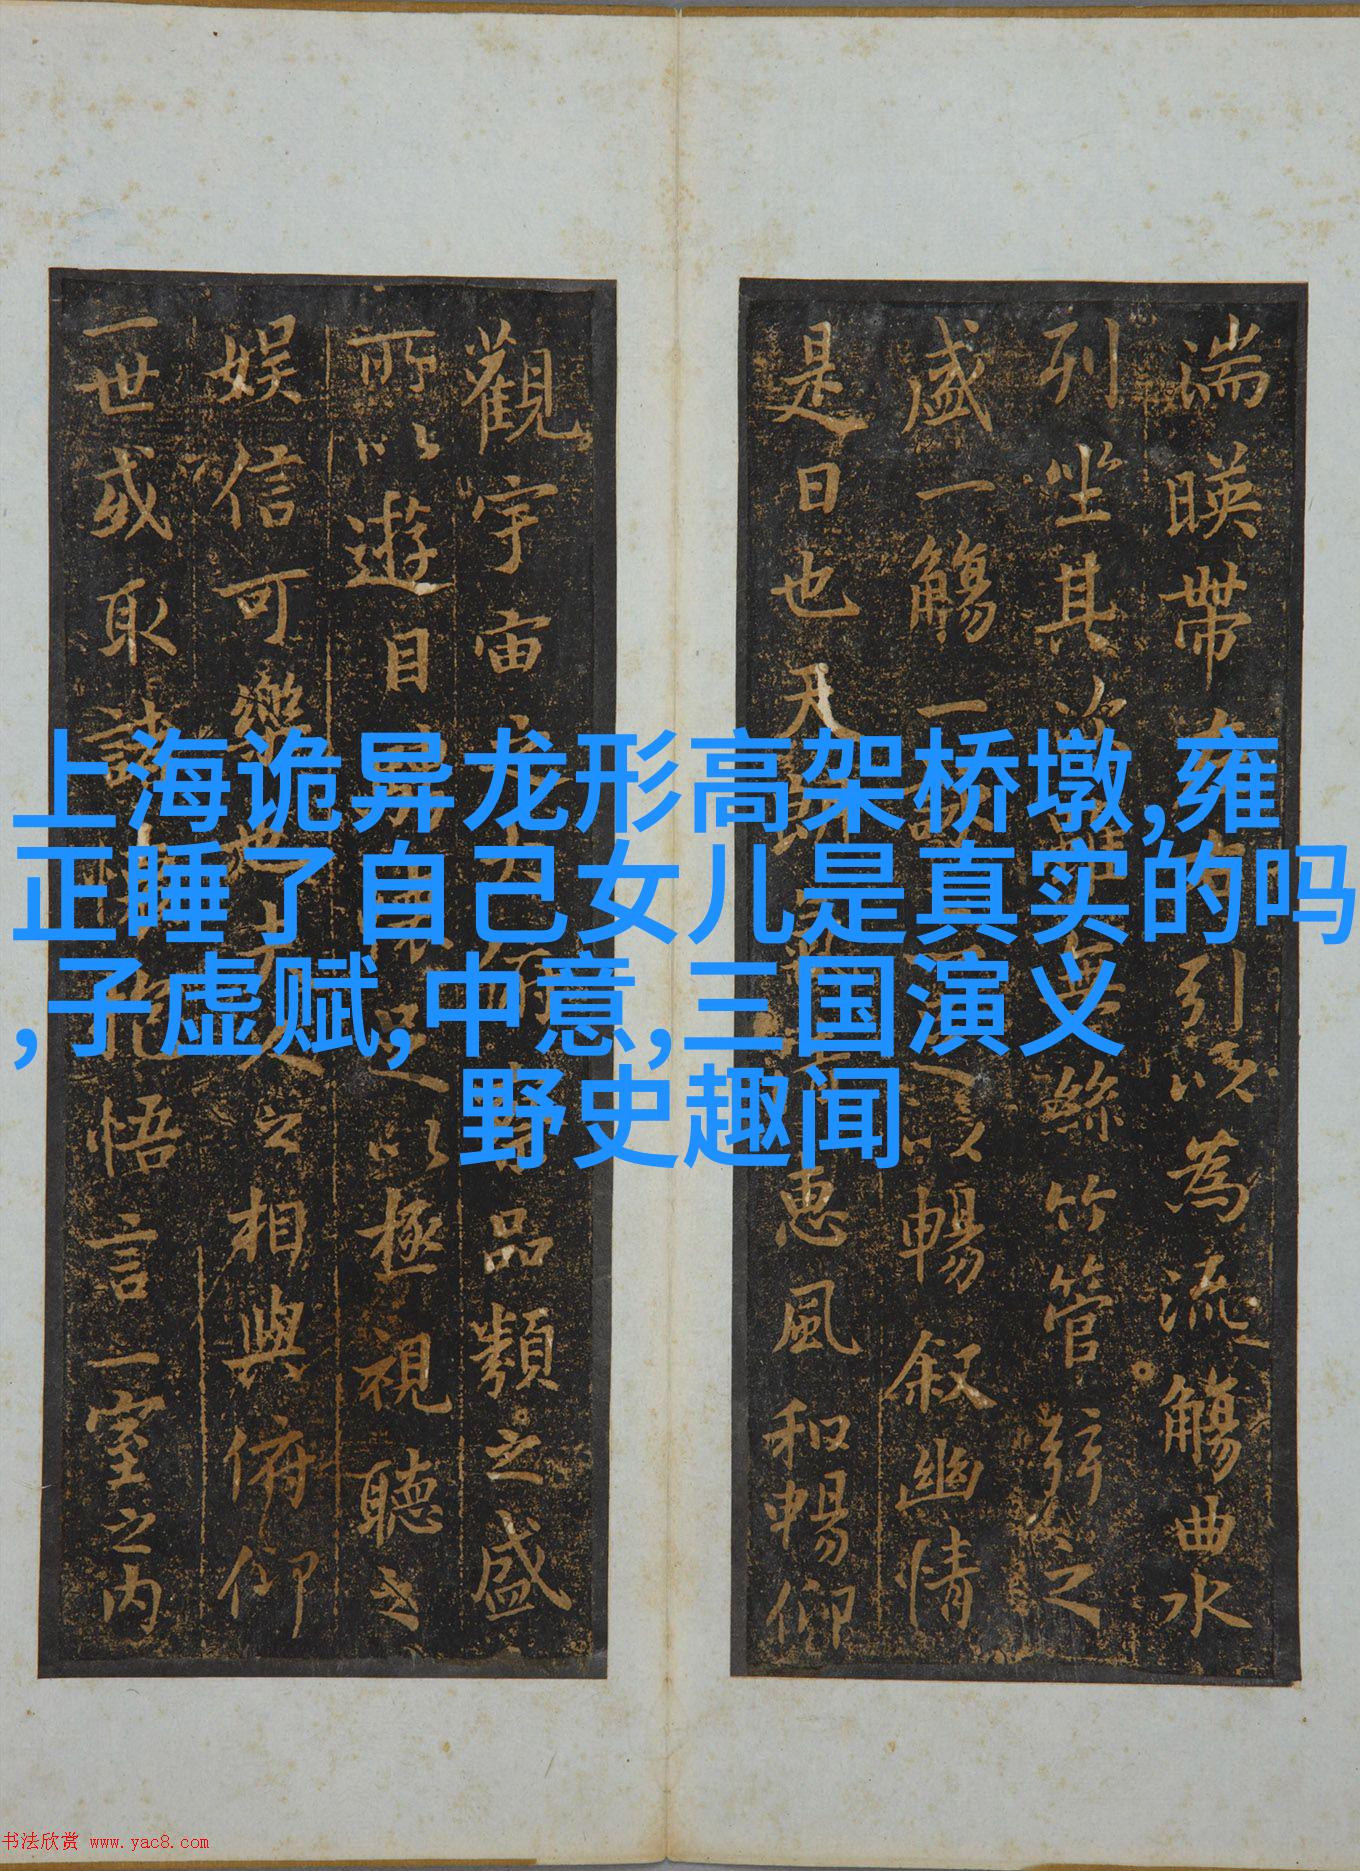 上海诡异龙形高架桥墩,雍
正睡了自己女儿是真实的吗
,子虚赋,中意,三国演义
野史趣闻
湍暎帶左右引以為流觴曲水
列坐其次雖無絲竹管弦之
盛一觴一詠亦足以暢叙幽情
是日也天朗氣清惠風和暢仰
觀宇宙之大俯察品類之盛
所以遊目騁懷足以極視聽之
娛信可樂也夫人之相與俯仰
一世或取諸懷抱悟言一室之内
书法欣赏 www.yac8.com